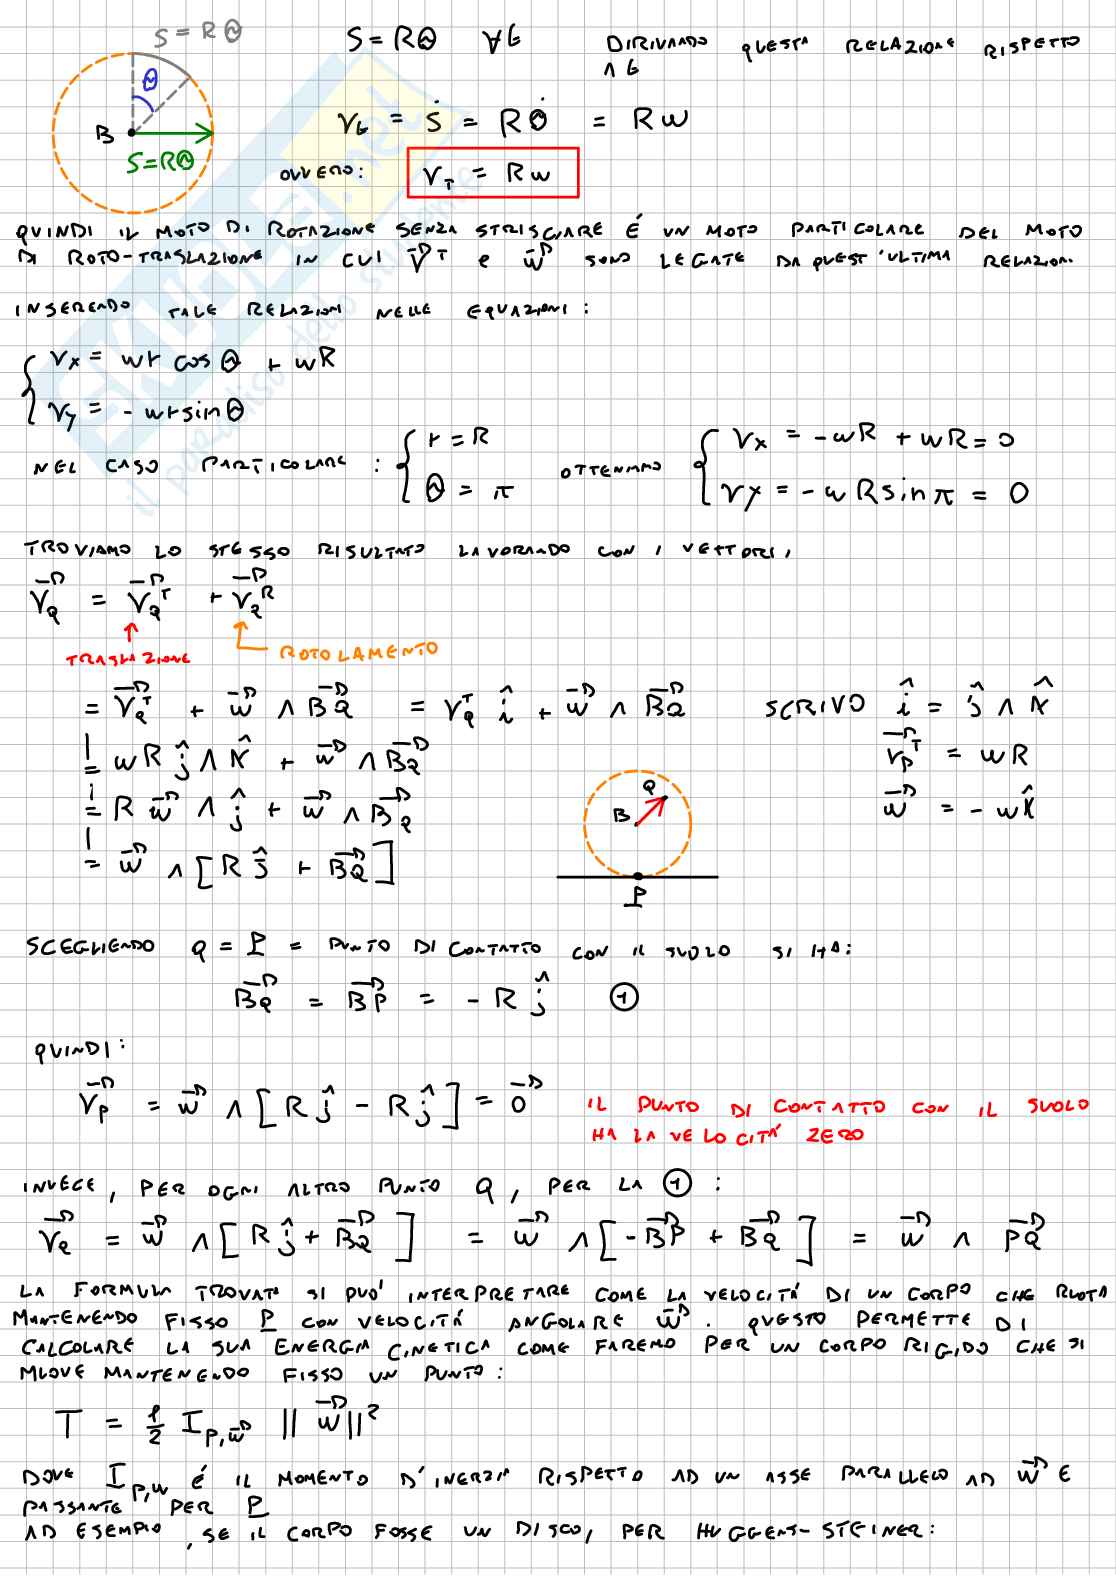 S = Rθ
θ
B
S=Rθ
S = Rθ ∀t DIRIVANDO QUESTA RELAZIONE RISPETTO
A t
V_t = Ṡ = Rθ̇ = Rw
OVVERO: V_T = Rw
QUINDI IL MOTO DI ROTAZIONE SENZA STRISCIARE É UN MOTO PARTICOLARE DEL MOTO
DI ROTO-TRASLAZIONE IN CUI V⃗^T e w⃗ SONO LEGATE DA QUEST'ULTIMA RELAZION.
INSERENDO TALE RELAZION NELLE EQUAZIONI:
{ Vx = wr cos θ + wR
Vy = - wr sin θ
NEL CASO PARTICOLARE : { r = R
θ = π
OTTENIAMO { Vx = -wR + wR = 0
Vy = - wR sin π = 0
TROVIAMO LO STESSO RISULTATO LAVORANDO CON I VETTORI,
V⃗_Q = V⃗_Q^T + V⃗_Q^R
TRASLAZIONE
ROTOLAMENTO
= V⃗_Q^T + w⃗ ∧ BQ⃗ = V_Q^T î + w⃗ ∧ BQ⃗ SCRIVO î = ĵ ∧ k̂
= wR ĵ ∧ k̂ + w⃗ ∧ BQ⃗ V⃗_P^T = wR
= R w⃗ ∧ ĵ + w⃗ ∧ BQ⃗ w⃗ = - wk̂
= w⃗ ∧ [R ĵ + BQ⃗]
Q
B
P
SCEGLIENDO Q = P = PUNTO DI CONTATTO CON IL SUOLO SI HA:
BQ⃗ = BP⃗ = - R ĵ ①
QUINDI:
V⃗_P = w⃗ ∧ [R ĵ - R ĵ] = 0⃗ IL PUNTO DI CONTATTO CON IL SUOLO
HA LA VELOCITÁ ZERO
INVECE, PER OGNI ALTRO PUNTO Q, PER LA ① :
V⃗_Q = w⃗ ∧ [R ĵ + BQ⃗] = w⃗ ∧ [-BP⃗ + BQ⃗] = w⃗ ∧ PQ⃗
LA FORMULA TROVATA SI PUO' INTERPRETARE COME LA VELOCITÁ DI UN CORPO CHE RUOTA
MANTENENDO FISSO P CON VELOCITÁ ANGOLARE w⃗. QUESTO PERMETTE DI
CALCOLARE LA SUA ENERGIA CINETICA COME FAREMO PER UN CORPO RIGIDO CHE SI
MUOVE MANTENENDO FISSO UN PUNTO:
T = 1/2 I_P,w⃗ ||w⃗||²
DOVE I_P,w É IL MOMENTO D'INERZIA RISPETTO AD UN ASSE PARALLELO AD w⃗ E
PASSANTE PER P
AD ESEMPIO, SE IL CORPO FOSSE UN DISCO, PER HUGGENS-STEINER: